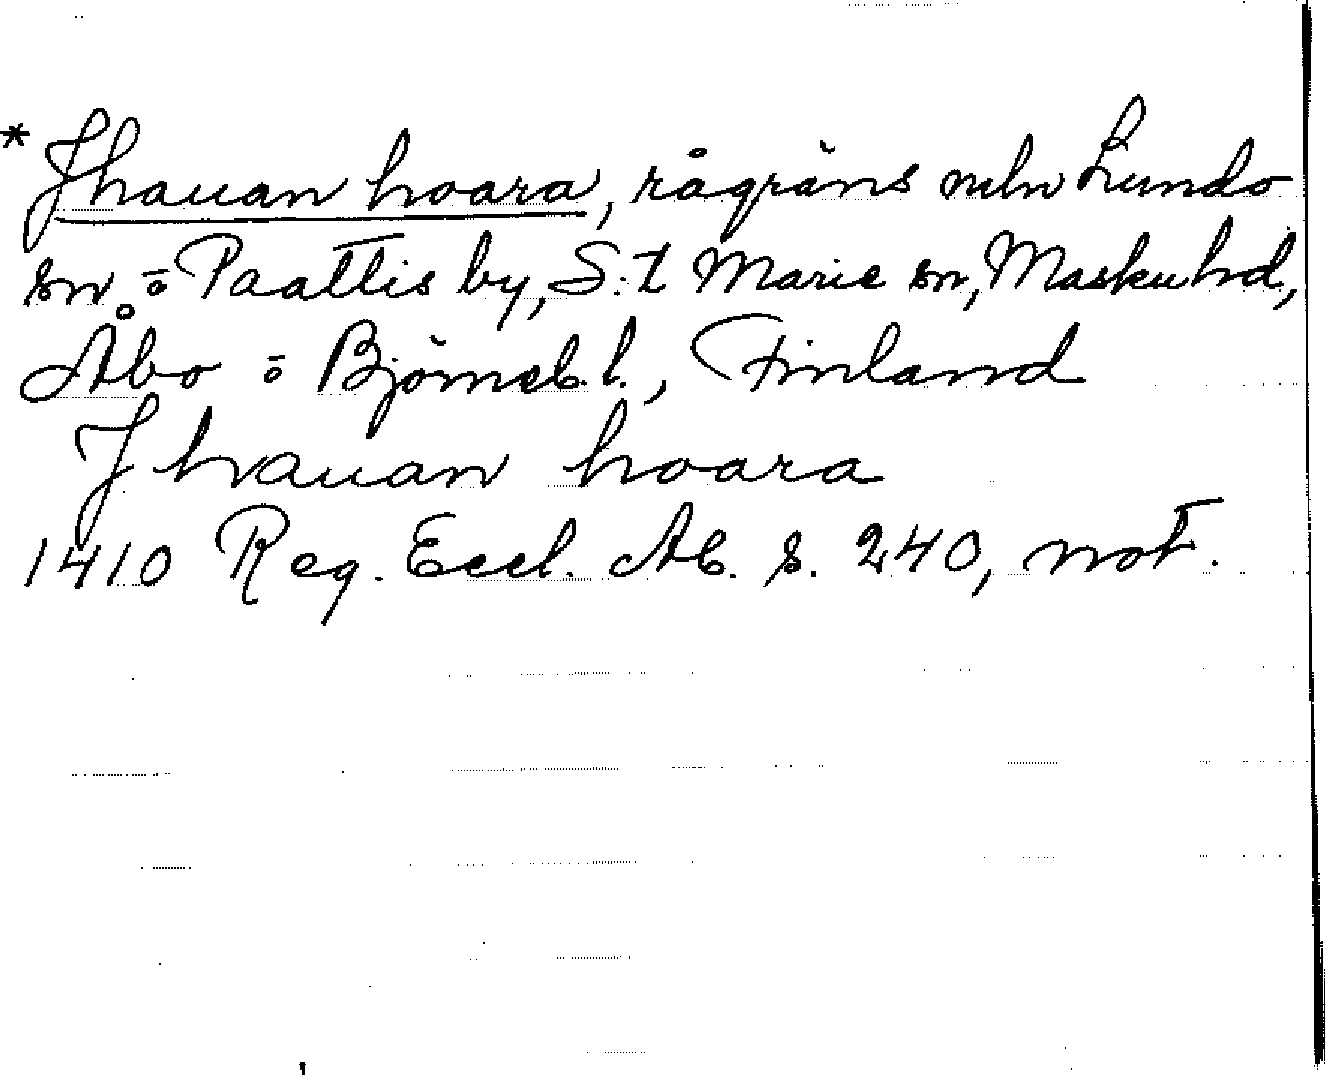 * Jhauan hoara, rågräns mln Lundo
sn. o Paattis by, S:t Marie sn, Masku hd,
Åbo o Björneb. l., Finland
Jhauan hoara
1410 Reg. Eccl. Ab. s. 240, not.